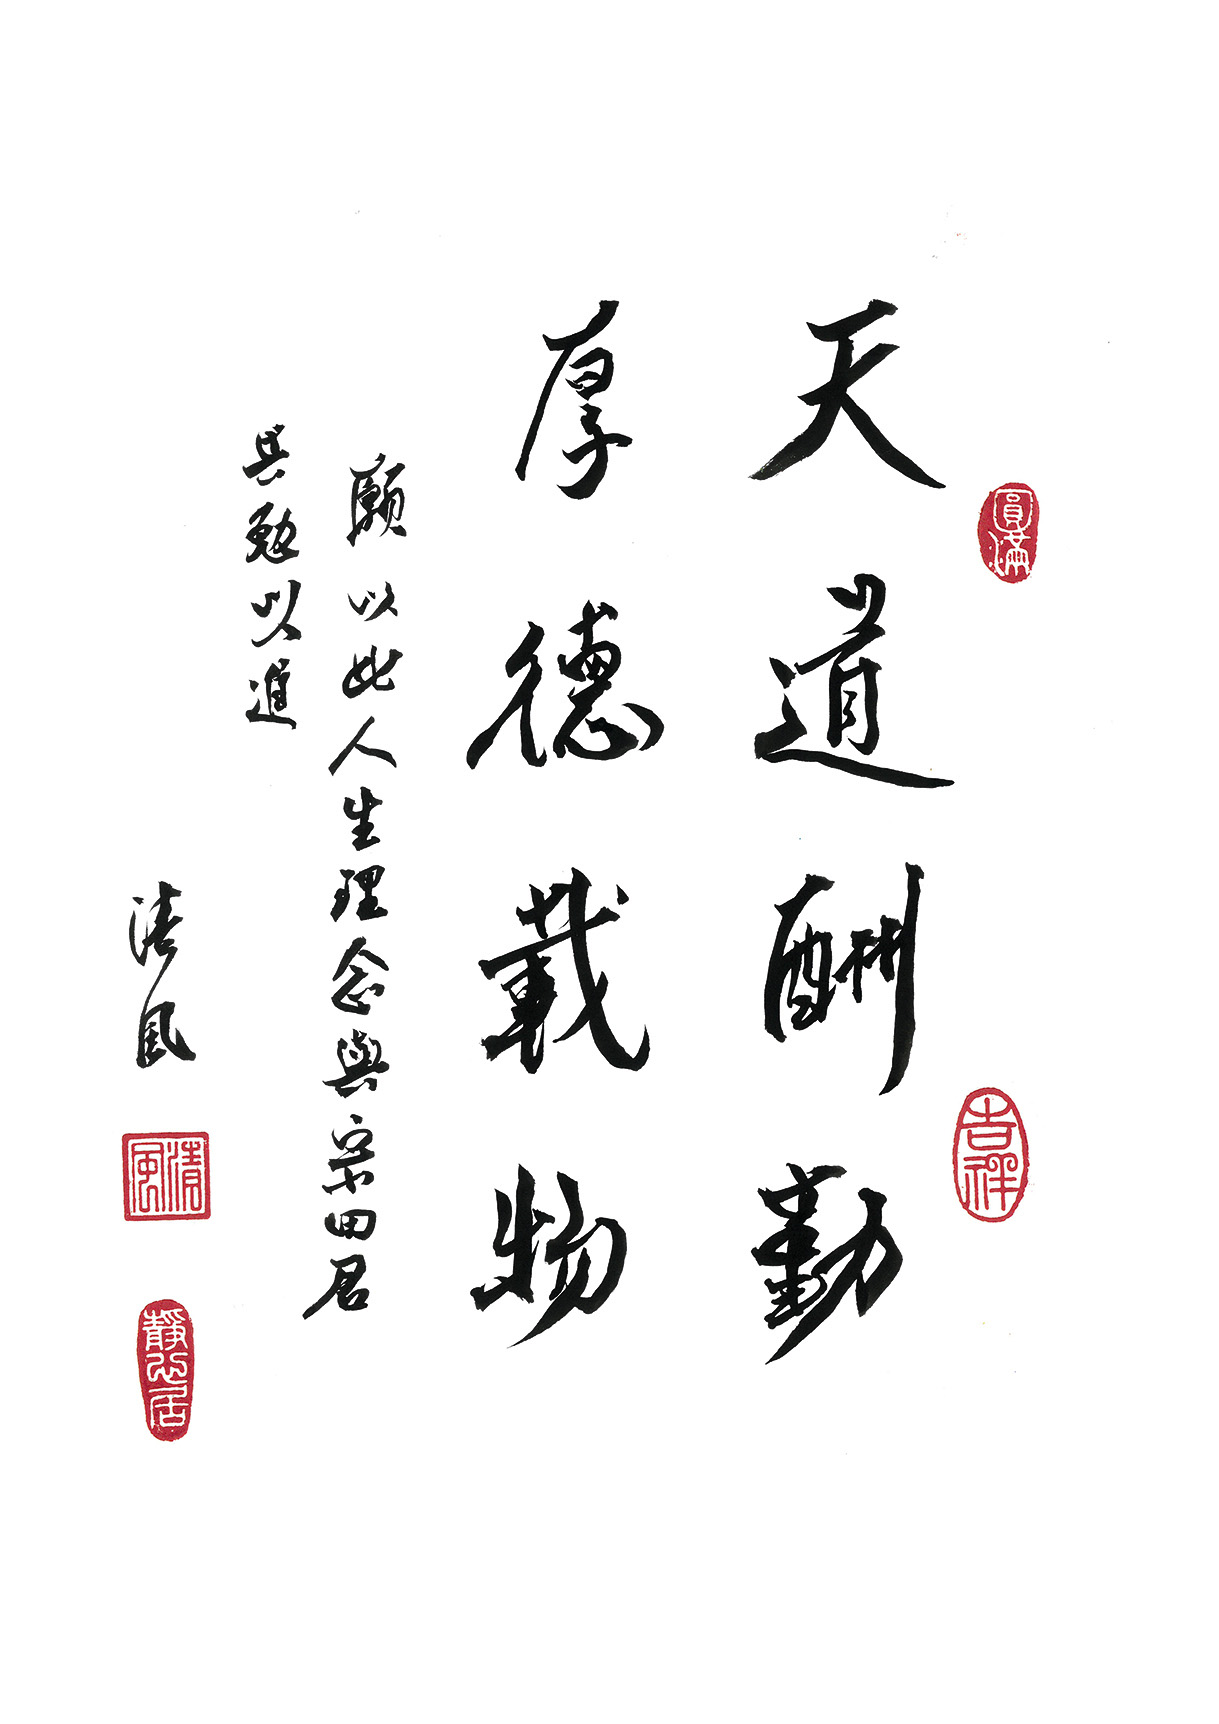 天道酬勤
厚德載物
願以此人生理念與宗田君
共勉以進
清風
圓滿
吉祥
清風
靜心居